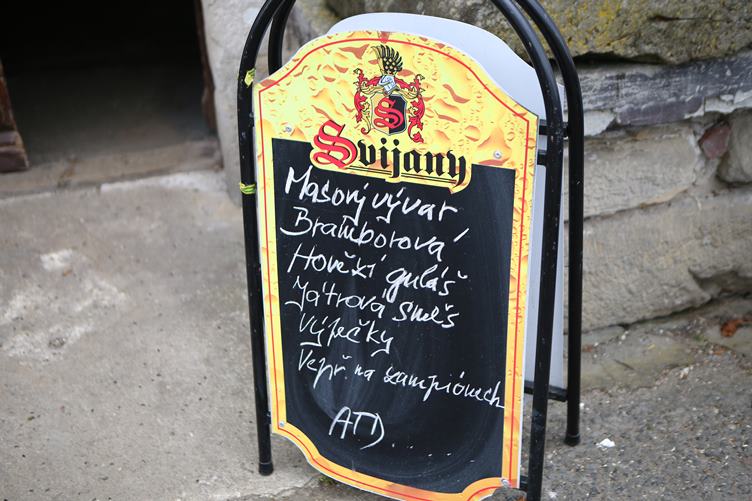 S
Svijany
Masový vývar
Bramborová
Hovězí guláš
Játrová směs
Výpečky
Vepř. na žampiónech
ATD.....